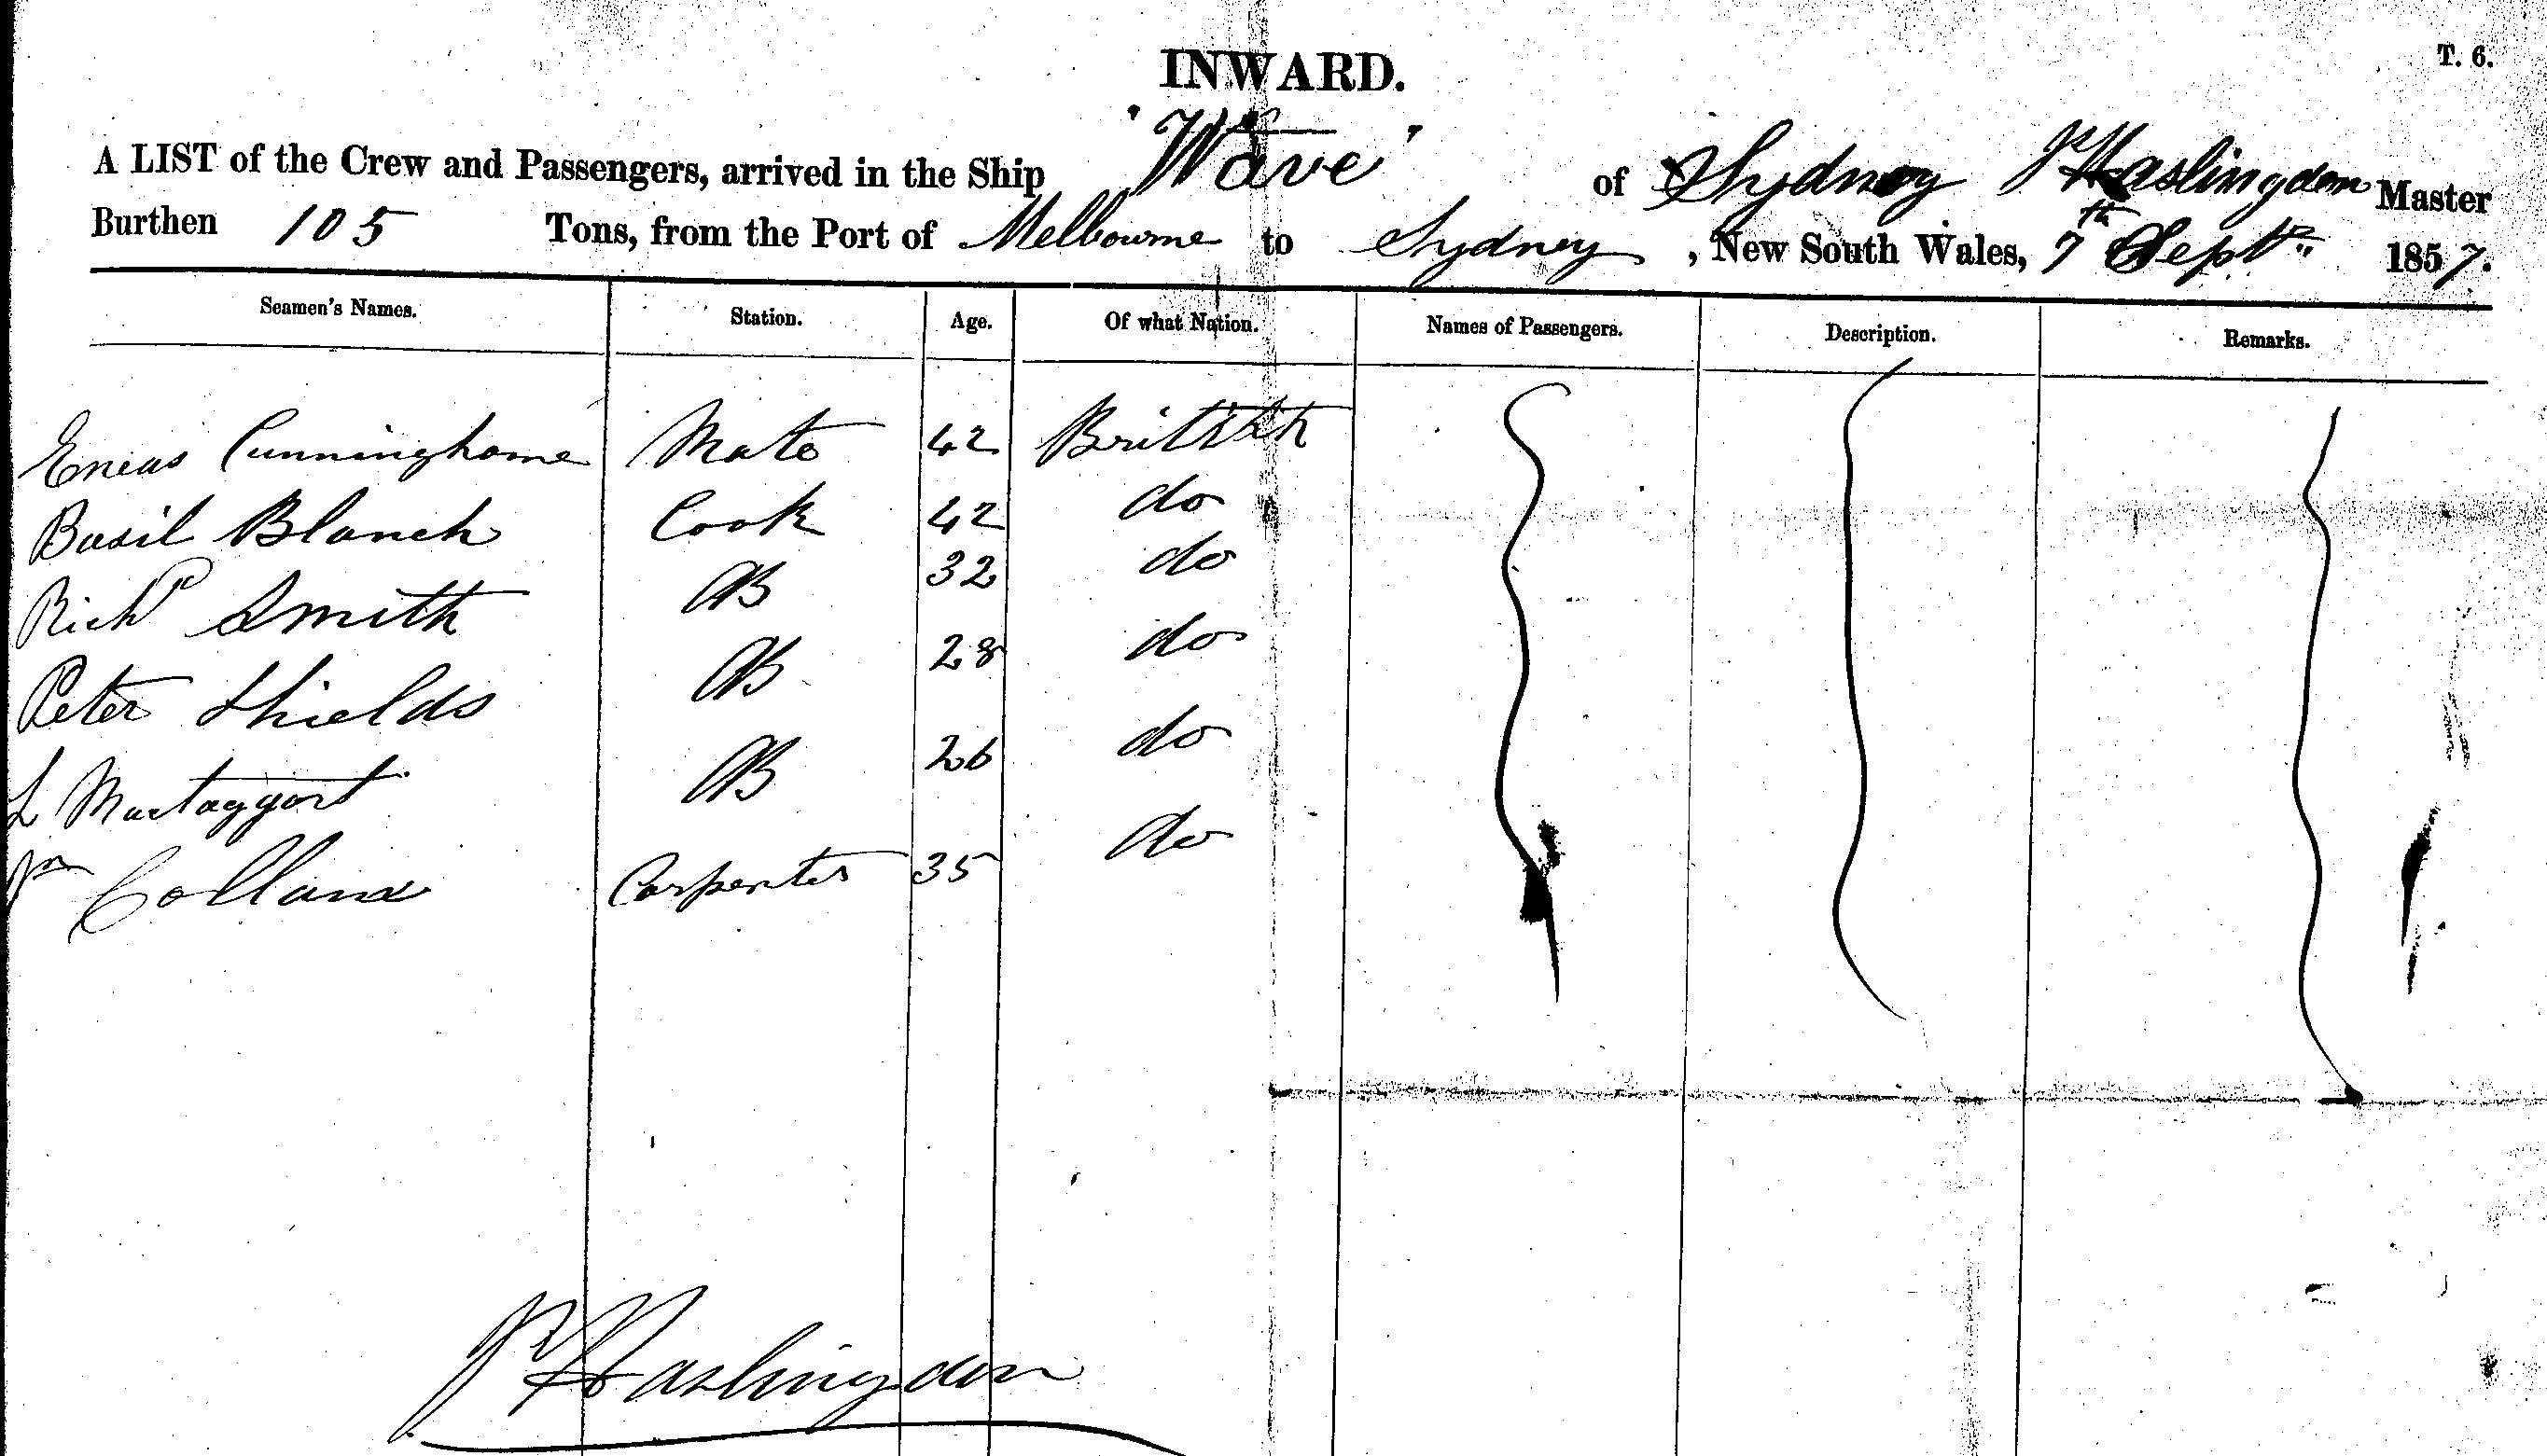 INWARD.
T. 6.
A LIST of the Crew and Passengers, arrived in the Ship "Wave" of Sydney Haslingdon Master
Burthen 105 Tons, from the Port of Melbourne to Sydney, New South Wales, 7th Septr 1857.
Seamen's Names. Station. Age. Of what Nation. Names of Passengers. Description. Remarks.
Eneas Cunninghame Mate 42 British
Basil Blanch Cook 42 do
Richd Smith AB 32 do
Peter Shields AB 28 do
L Mactaggart AB 26 do
Carpenter 35 do
Haslingdon